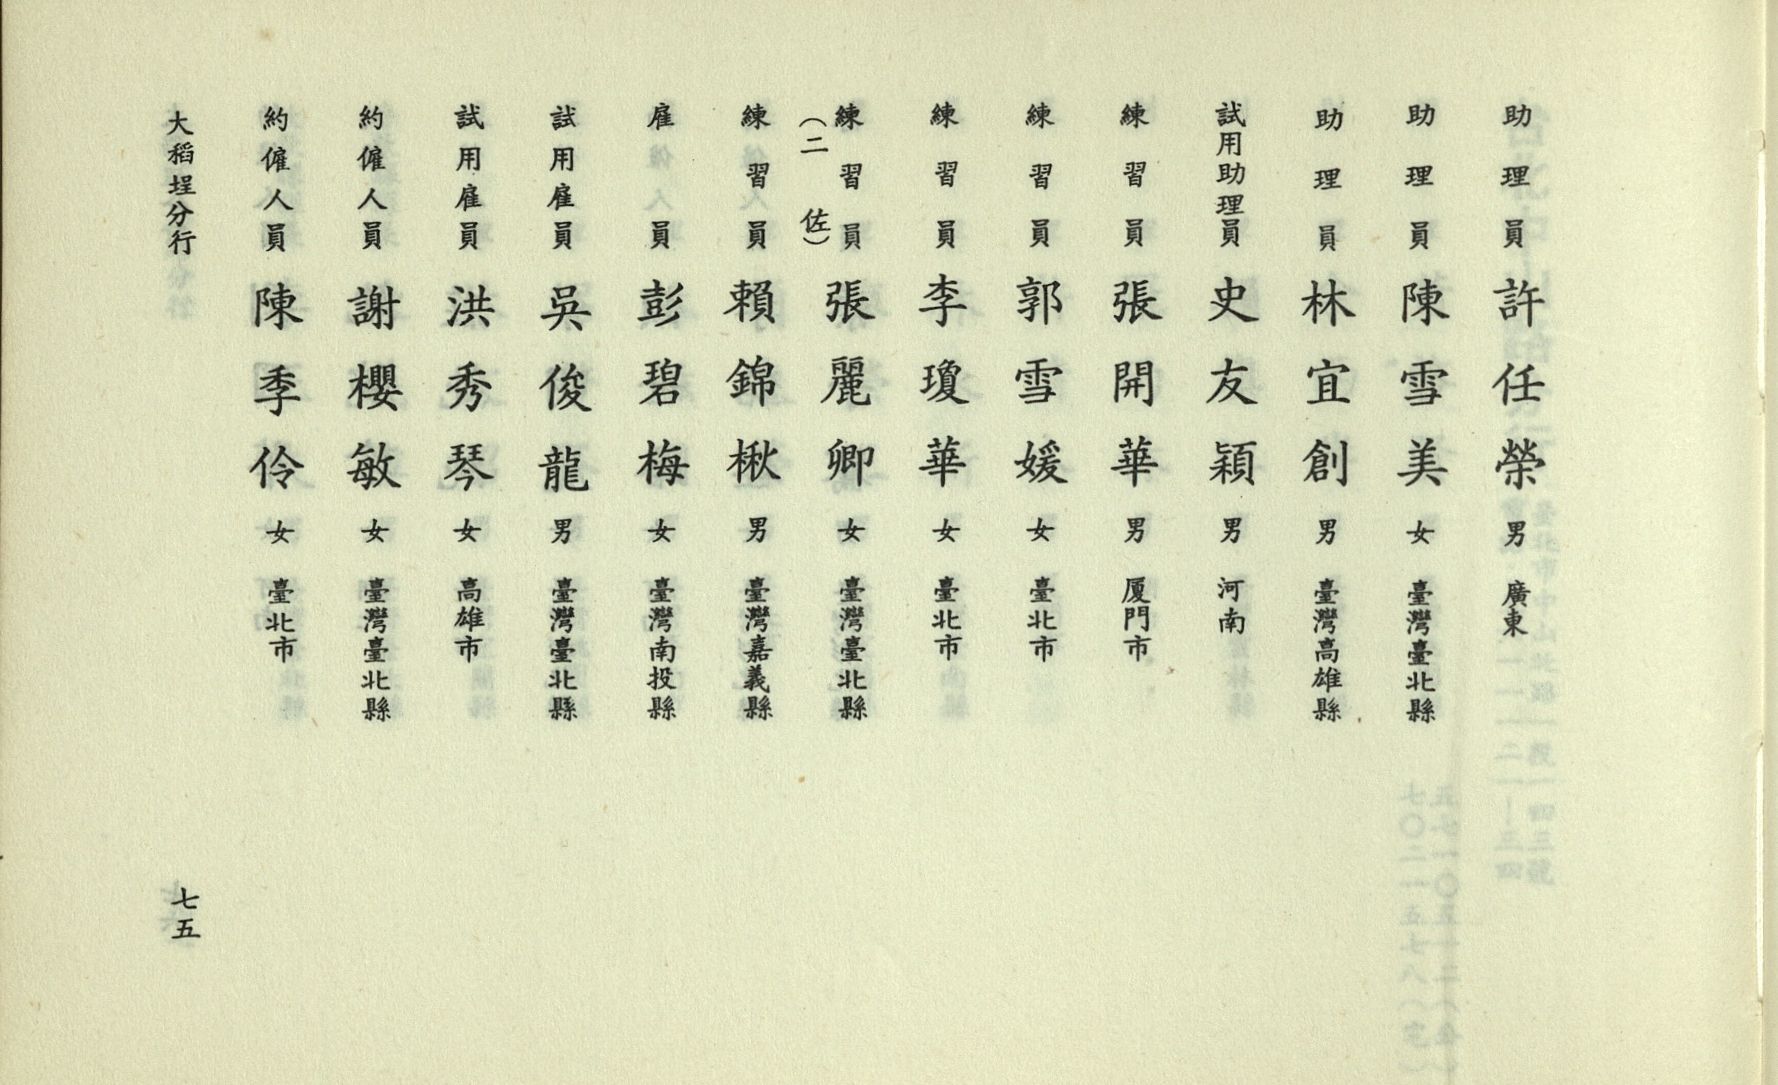 助理員 許任榮 男 廣東
助理員 陳雪美 女 臺灣臺北縣
助理員 林宜創 男 臺灣高雄縣
試用助理員 史友穎 男 河南
練習員 張開華 男 厦門市
練習員 郭雪媛 女 臺北市
練習員 李瓊華 女 臺北市
練習員 張麗卿 女 臺灣臺北縣
（二佐）
練習員 賴錦楸 男 臺灣嘉義縣
雇員 彭碧梅 女 臺灣南投縣
試用雇員 吳俊龍 男 臺灣臺北縣
試用雇員 洪秀琴 女 高雄市
約僱人員 謝櫻敏 女 臺灣臺北縣
約僱人員 陳季伶 女 臺北市
大稻埕分行
七五